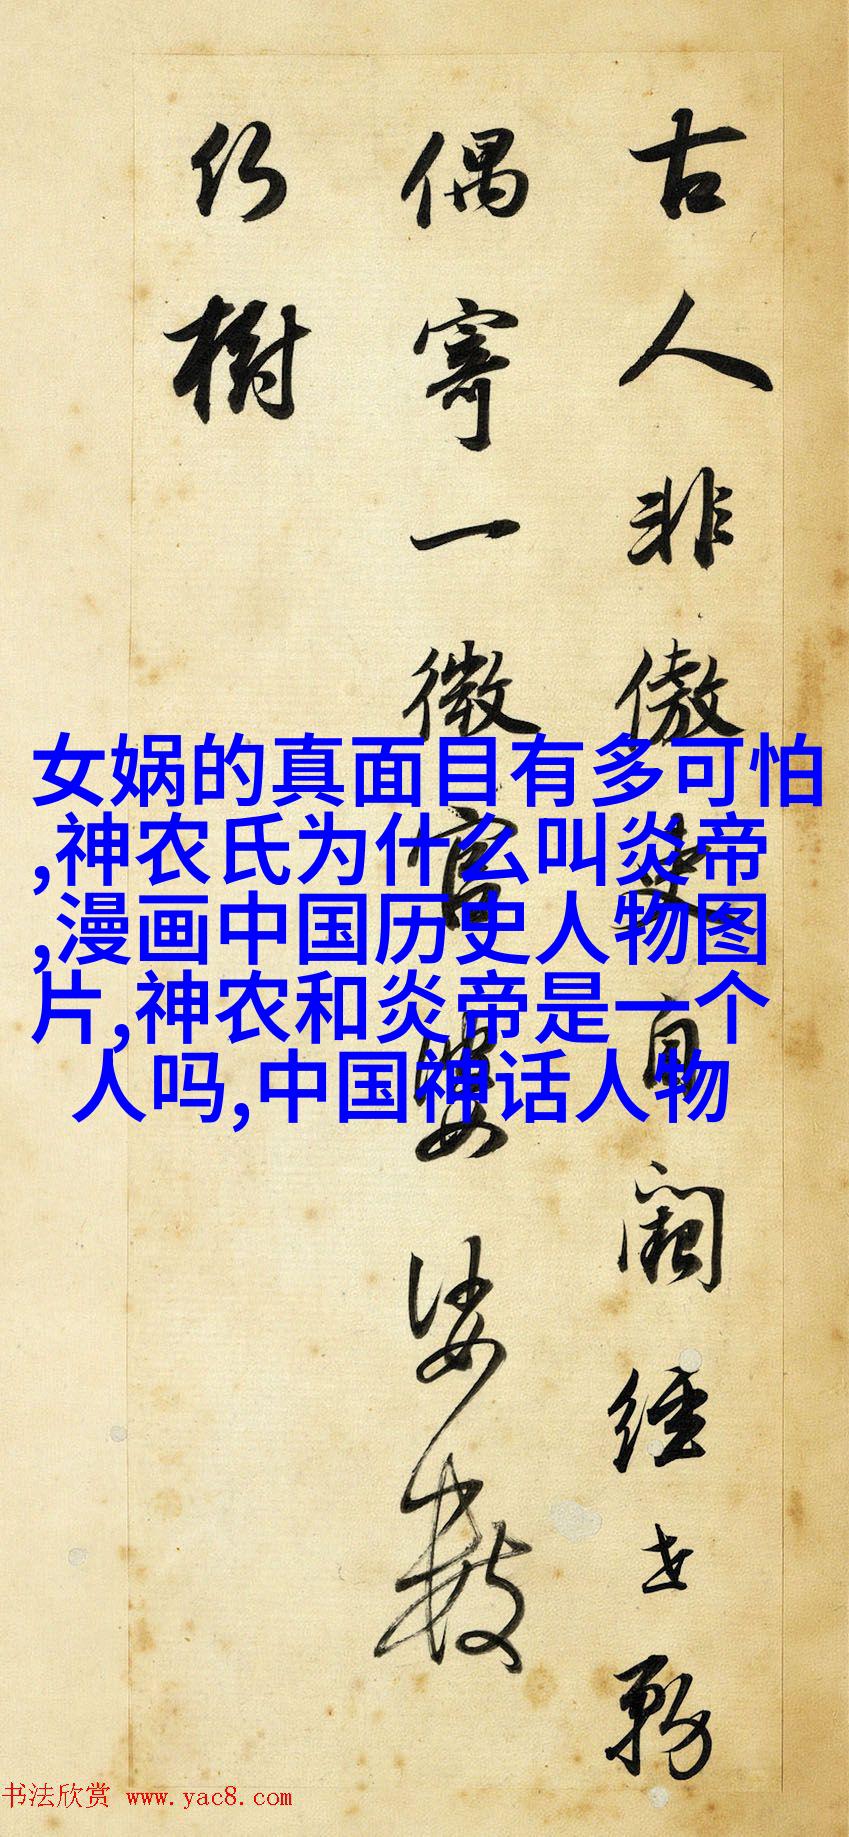 古人非傲吏自闕經世務
偶寄一微官婆娑數
仍樹
女娲的真面目有多可怕
,神农氏为什么叫炎帝
,漫画中国历史人物图
片,神农和炎帝是一个
人吗,中国神话人物
书法欣赏 www.yac8.com